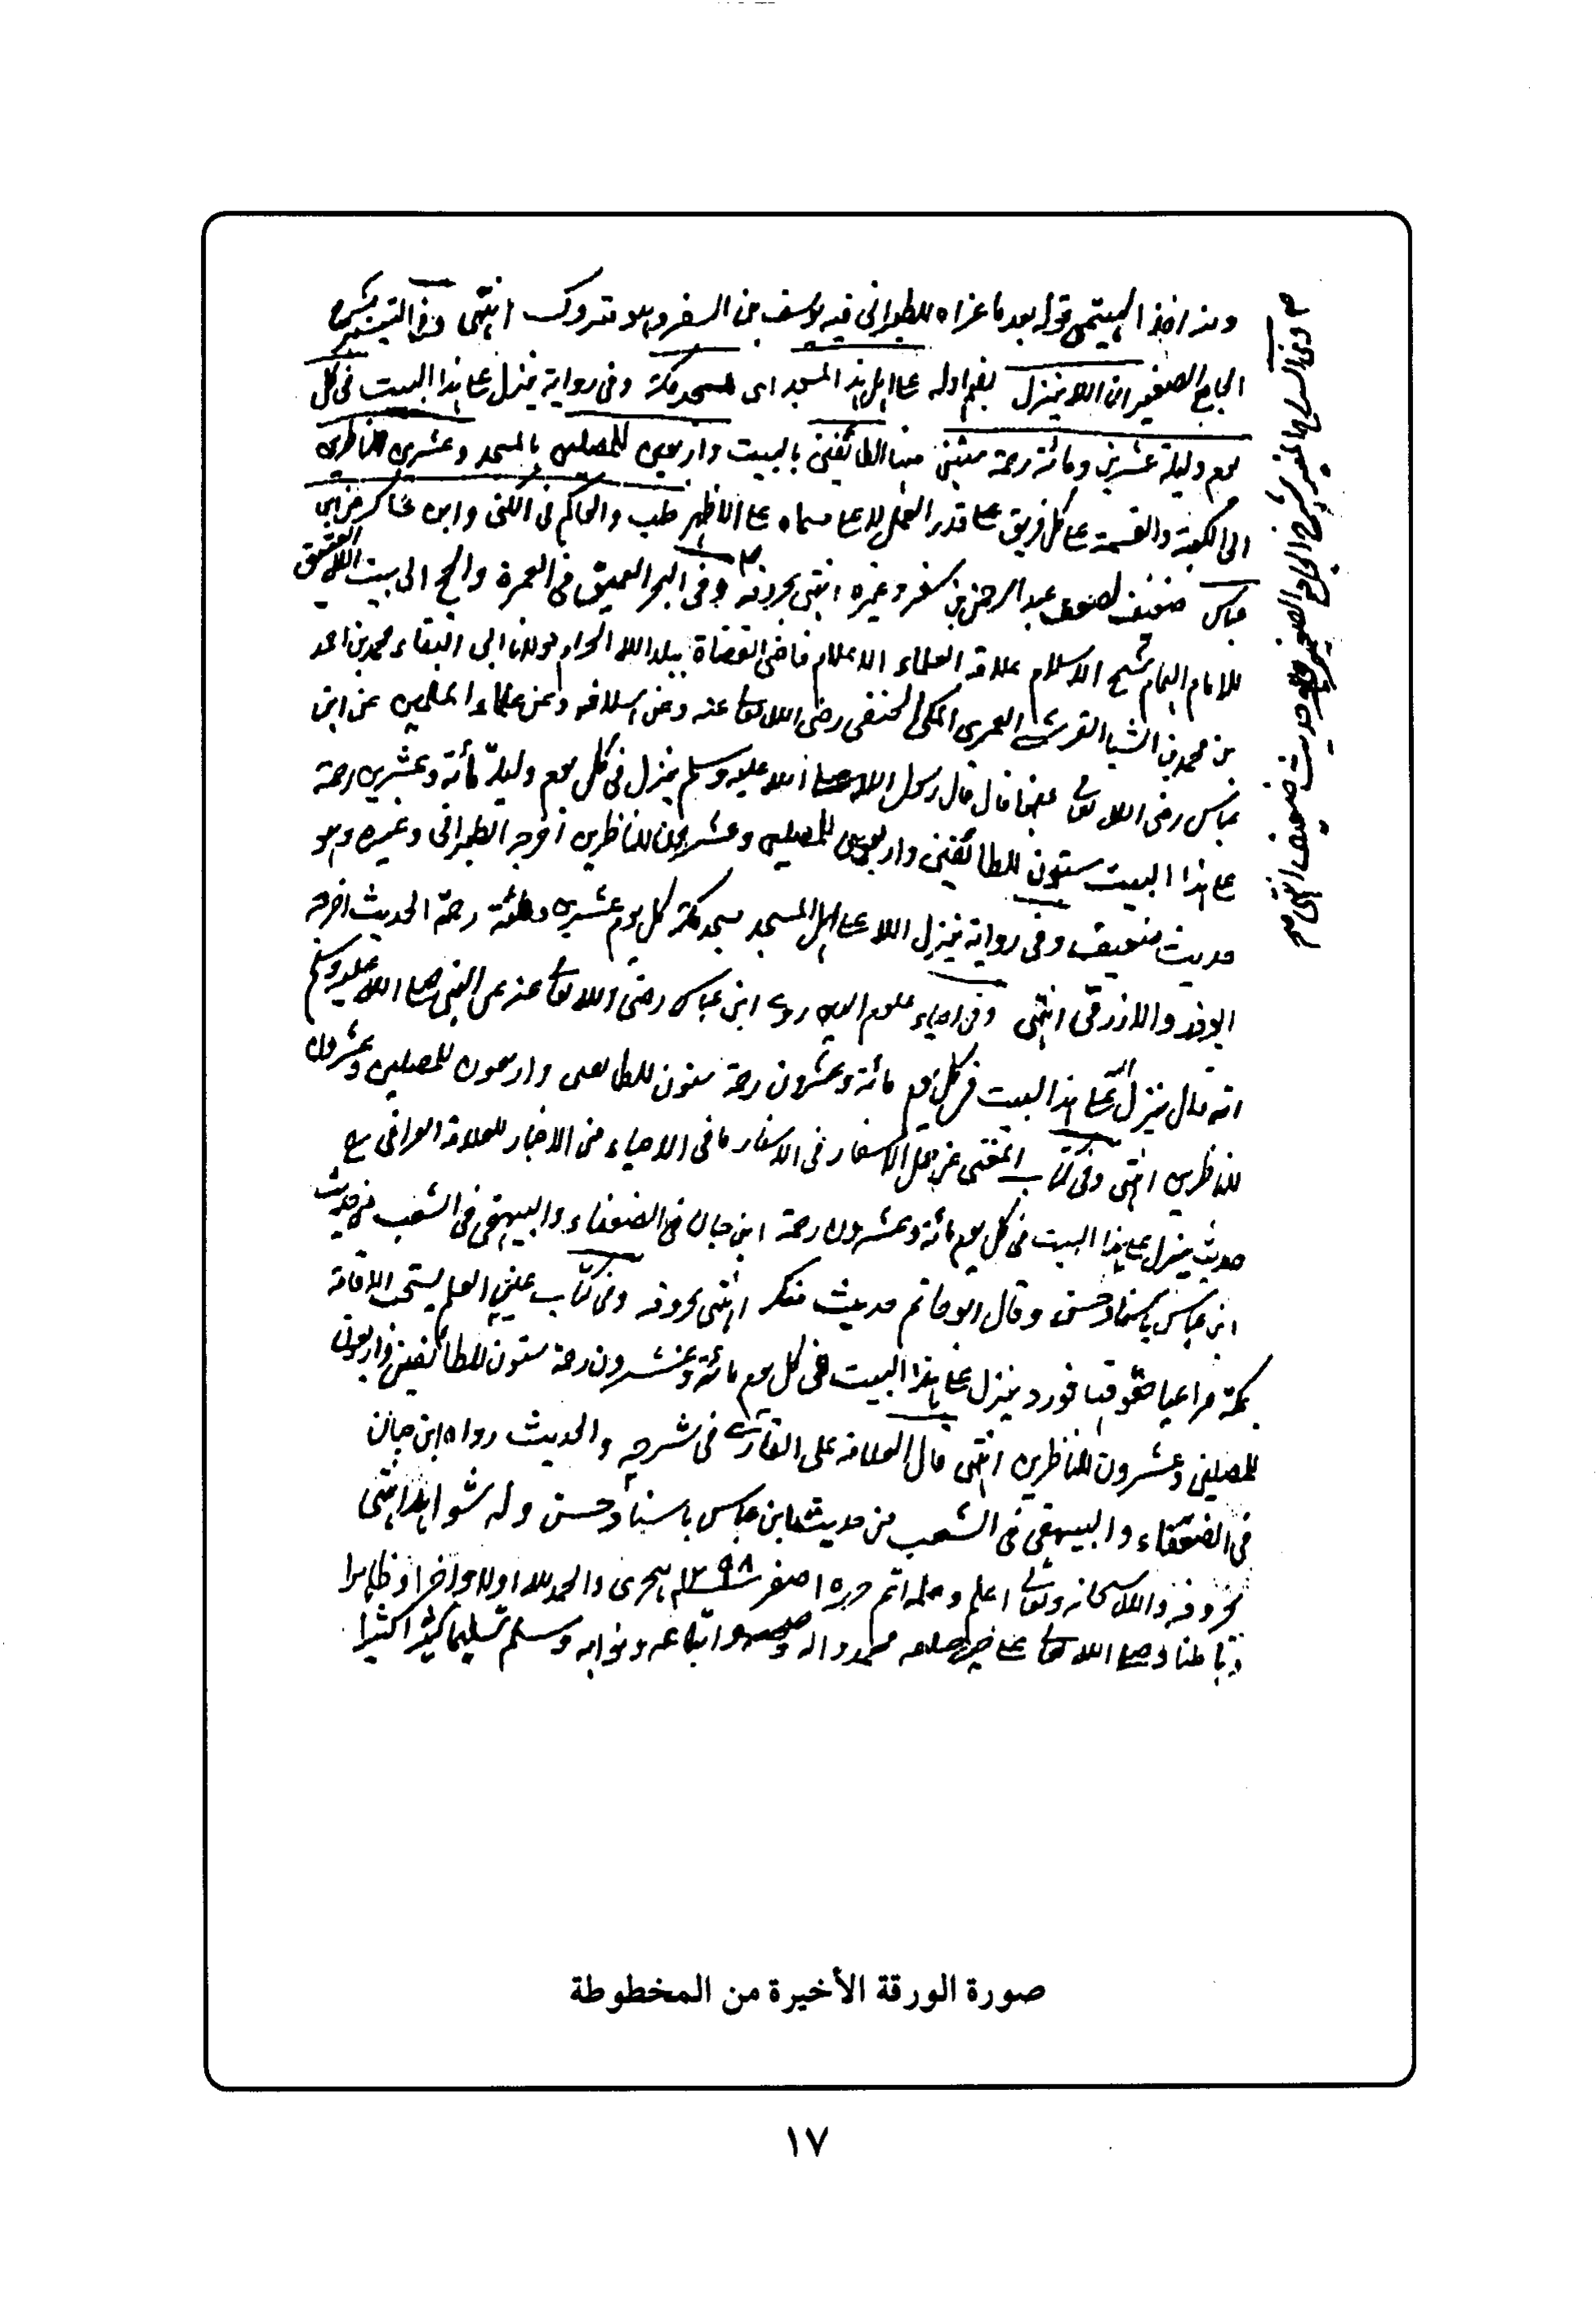 ومنه اخذ الهيتمي قوله بعد ما عزاه للطبراني فيه يوسف بن السفر وهو متروك انتهى وفي التيسير شرح
الجامع الصغير ان الله ينزل بضم اوله على اهل هذا المسجد اى مسجد مكة وفى رواية ينزل على هذا البيت فى كل
يوم وليلة عشرين ومائة رحمة ستين منها للطائفين بالبيت واربعين للمصلين بالمسجد وعشرين للناظرين
الى الكعبة والقسمة على كل فريق على قدر العمل لا على مسماه على الاظهر طب والحاكم فى الكنى وابن عساكر عن ابن
عباس ضعيف لضعف عبد الرحمن بن سفر وغيره انتهى بحروفه وفى البحر العميق فى العمرة والحج الى بيت الله العتيق
للامام الهمام شيخ الاسلام علامة العلماء الاعلام قاضى القضاة ببلد الله الحرام مولانا ابى البقاء محمد بن احمد
بن محمد بن الضيا القرشي العمرى المكى الحنفى رضى الله تعالى عنه وعن اسلافه وعن علماء المسلمين عن ابن
عباس رضى الله تعالى عنهما قال قال رسول الله صلى الله عليه وسلم ينزل فى كل يوم وليلة مائة وعشرين رحمة
على هذا البيت ستون للطائفين واربعون للمصلين وعشرون للناظرين اخرجه الطبرانى وغيره وهو
حديث ضعيف وفى رواية ينزل الله على اهل المسجد مسجد مكة كل يوم عشرين ومائة رحمة الحديث اخرجه
ابو ذر والازرقى انتهى وفى احياء علوم الدين روى ابن عباس رضى الله تعالى عنه عن النبى صلى الله عليه وسلم
انه قال ينزل الله على هذا البيت فى كل يوم مائة وعشرون رحمة ستون للطائفين واربعون للمصلين وعشرون
للناظرين انتهى وفى كتاب المغنى عن حمل الاسفار فى الاسفار ما فى الاحياء من الاخبار للعلامة العراقى
حديث ينزل على هذا البيت فى كل يوم مائة وعشرون رحمة ابن حبان فى الضعفاء والبيهقى فى الشعب من حديث
ابن عباس باسناد حسن وقال ابو حاتم حديث منكر انتهى بحروفه وفى كتاب عين العلم يستحب الاقامة
بمكة مراعيا حقوقها فورد ينزل على هذا البيت فى كل يوم مائة وعشرون رحمة ستون للطائفين واربعون
للمصلين وعشرون للناظرين انتهى قال العلامة على القارى فى شرحه والحديث رواه ابن حبان
فى الضعفاء والبيهقى فى الشعب من حديث ابن عباس باسناد حسن وله شواهد انتهى
بحروفه والله سبحانه وتعالى اعلم وعلمه اتم حرره صفر ١٢٩٨ هجرى والحمد لله اولا واخرا وظاهرا
وباطنا وصلى الله تعالى على خير خلقه محمد واله وصحبه واتباعه ونوابه وسلم تسليما كثيرا كثيرا
وفى السراج المنير شرح الجامع الصغير حديث ضعيف انتهى
صورة الورقة الأخيرة من المخطوطة
١٧